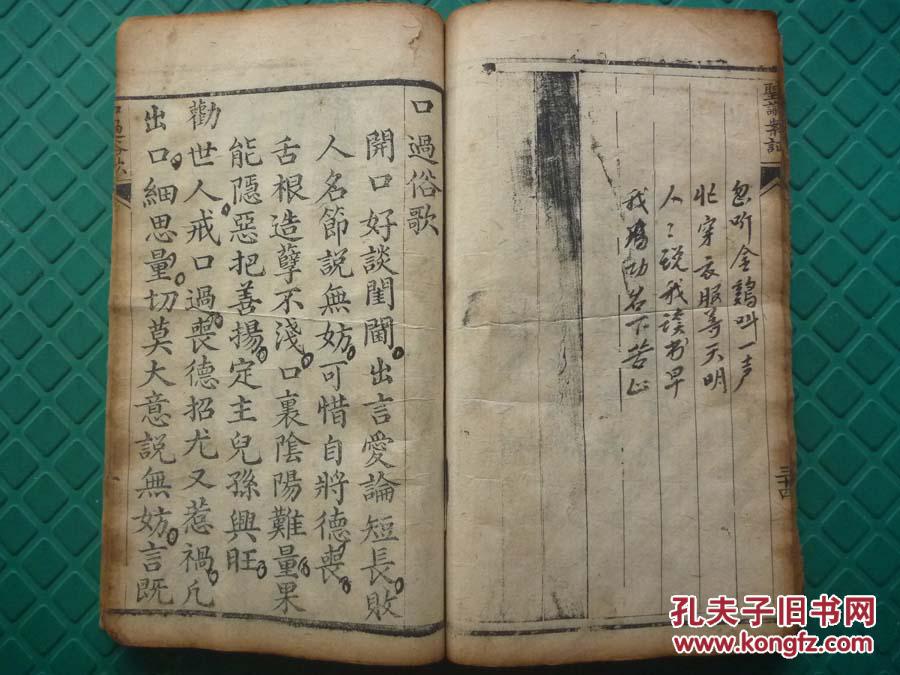 聖諭案証
忽听金鷄叫一声
忙穿衣服等天明
人〻说我读书早
我为功名下苦心
三十四
口過俗歌
開口好談閨閫出言愛論短長敗
人名節說無妨可惜自將德喪
舌根造孽不淺口裏陰陽難量果
能隱惡把善揚定主兒孫興旺
勸世人戒口過喪德招尤又惹禍凢
出口細思量切莫大意說無妨言既
孔夫子旧书网
www.kongfz.com